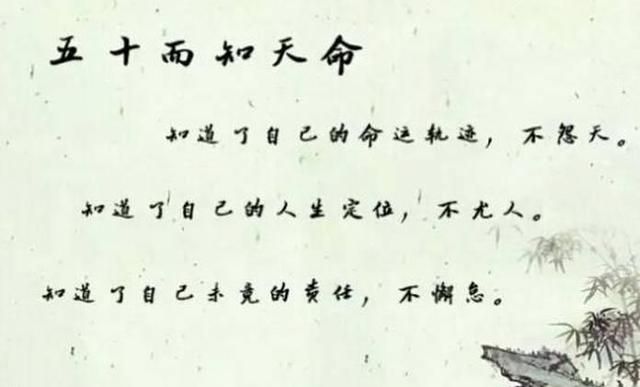 五十而知天命
知道了自己的命运轨迹，不怨天。
知道了自己的人生定位，不尤人。
知道了自己未竟的责任，不懈怠。